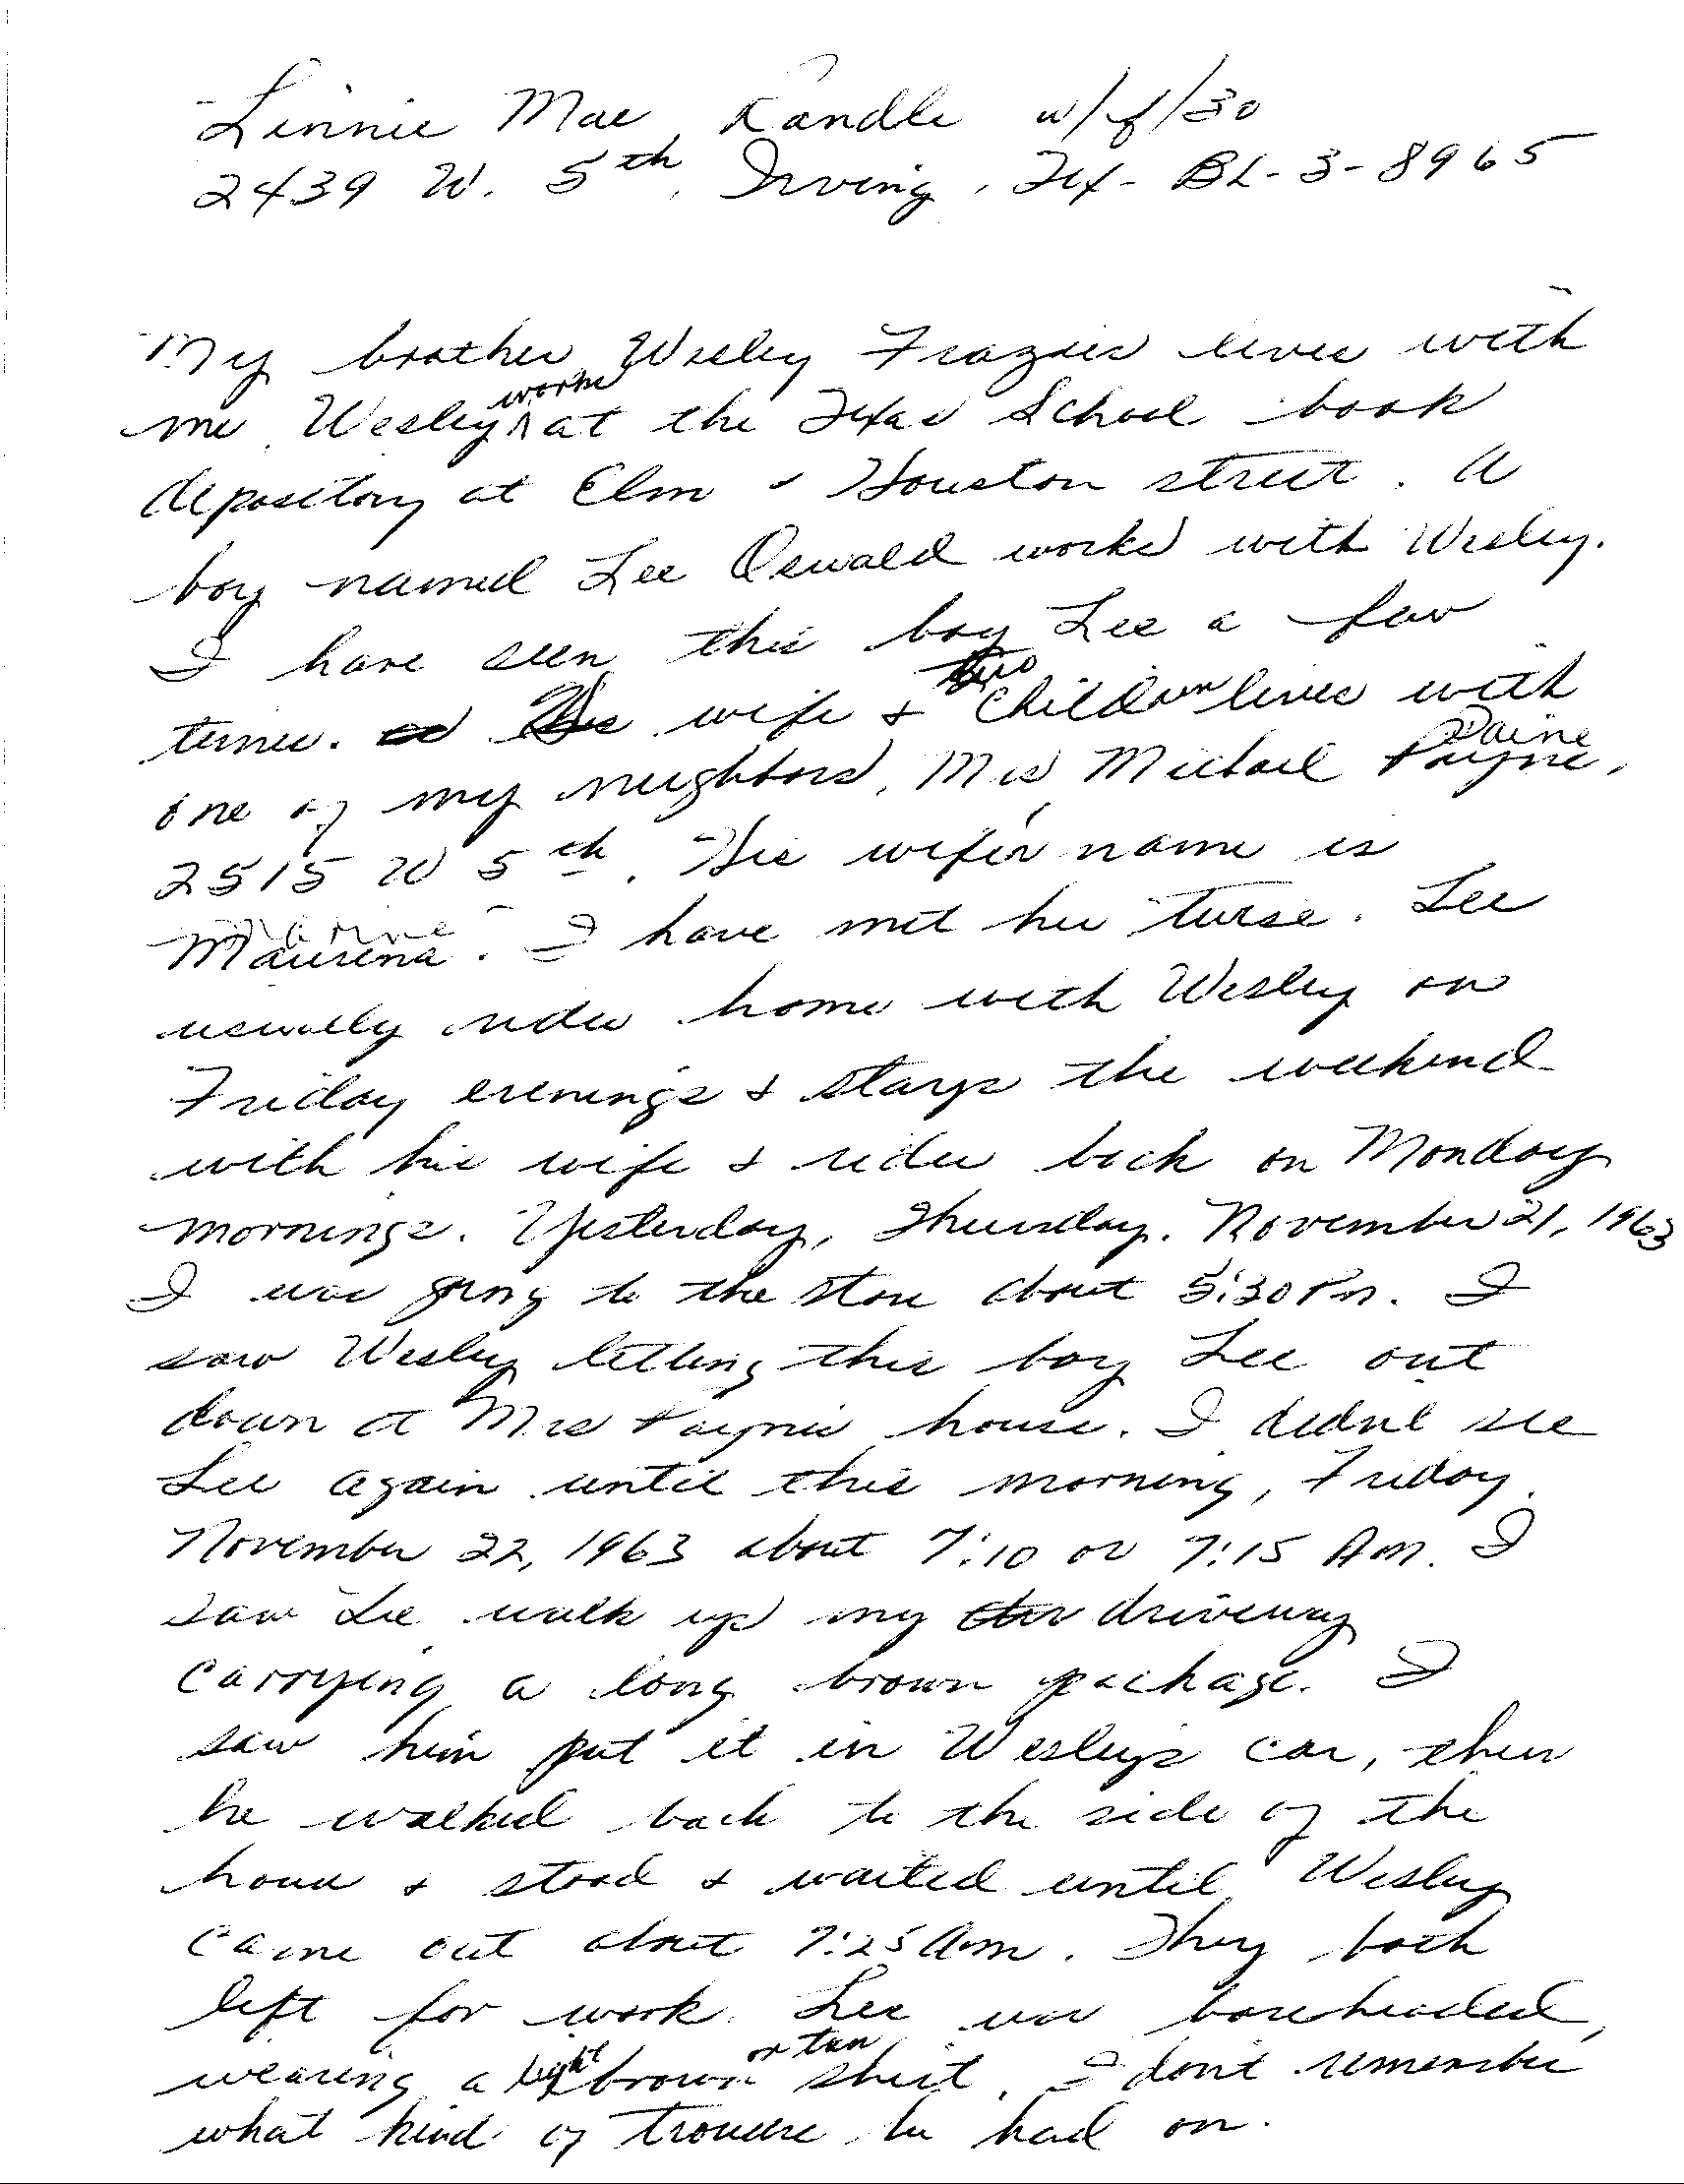 Linnie Mae Randle w/f/30
2439 W. 5th, Irving, Tex - BL-3-8965
My brother Wesley Frazier lives with
me. Wesley works at the Texas School book
depository at Elm & Houston street. A
boy named Lee Oswald works with Wesley.
I have seen this boy Lee a few
times. His wife & two children lives with
one of my neighbors, Mrs Michael Payne, Paine
2515 W 5th. His wife's name is
Maurena. Marine I have met her twice. Lee
usually rides home with Wesley on
Friday evenings & stays the weekend
with his wife & rides back on Monday
mornings. Yesterday, Thursday, November 21, 1963
I was going to the store about 5:30 Pm. I
saw Wesley letting this boy Lee out
down at Mrs Paynes house. I didn't see
Lee again until this morning, Friday
November 22, 1963 about 7:10 or 7:15 Am. I
saw Lee walk up my driveway
carrying a long brown package. I
saw him put it in Wesleys car, then
he walked back to the side of the
house & stood & waited until Wesley
came out about 7:25 Am. They both
left for work. Lee was bareheaded,
wearing a light brown or tan shirt. I don't remember
what kind of trousers he had on.